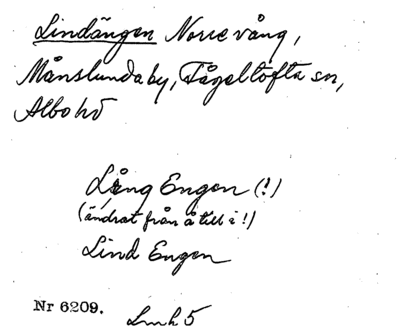 Lindängen Norrevång,
Månslunda by, Fågeltofta sn,
Albo hd
Lång Engen (!)
(ändrat från å till i !)
Lind Engen
Nr 6209. Lmk 5